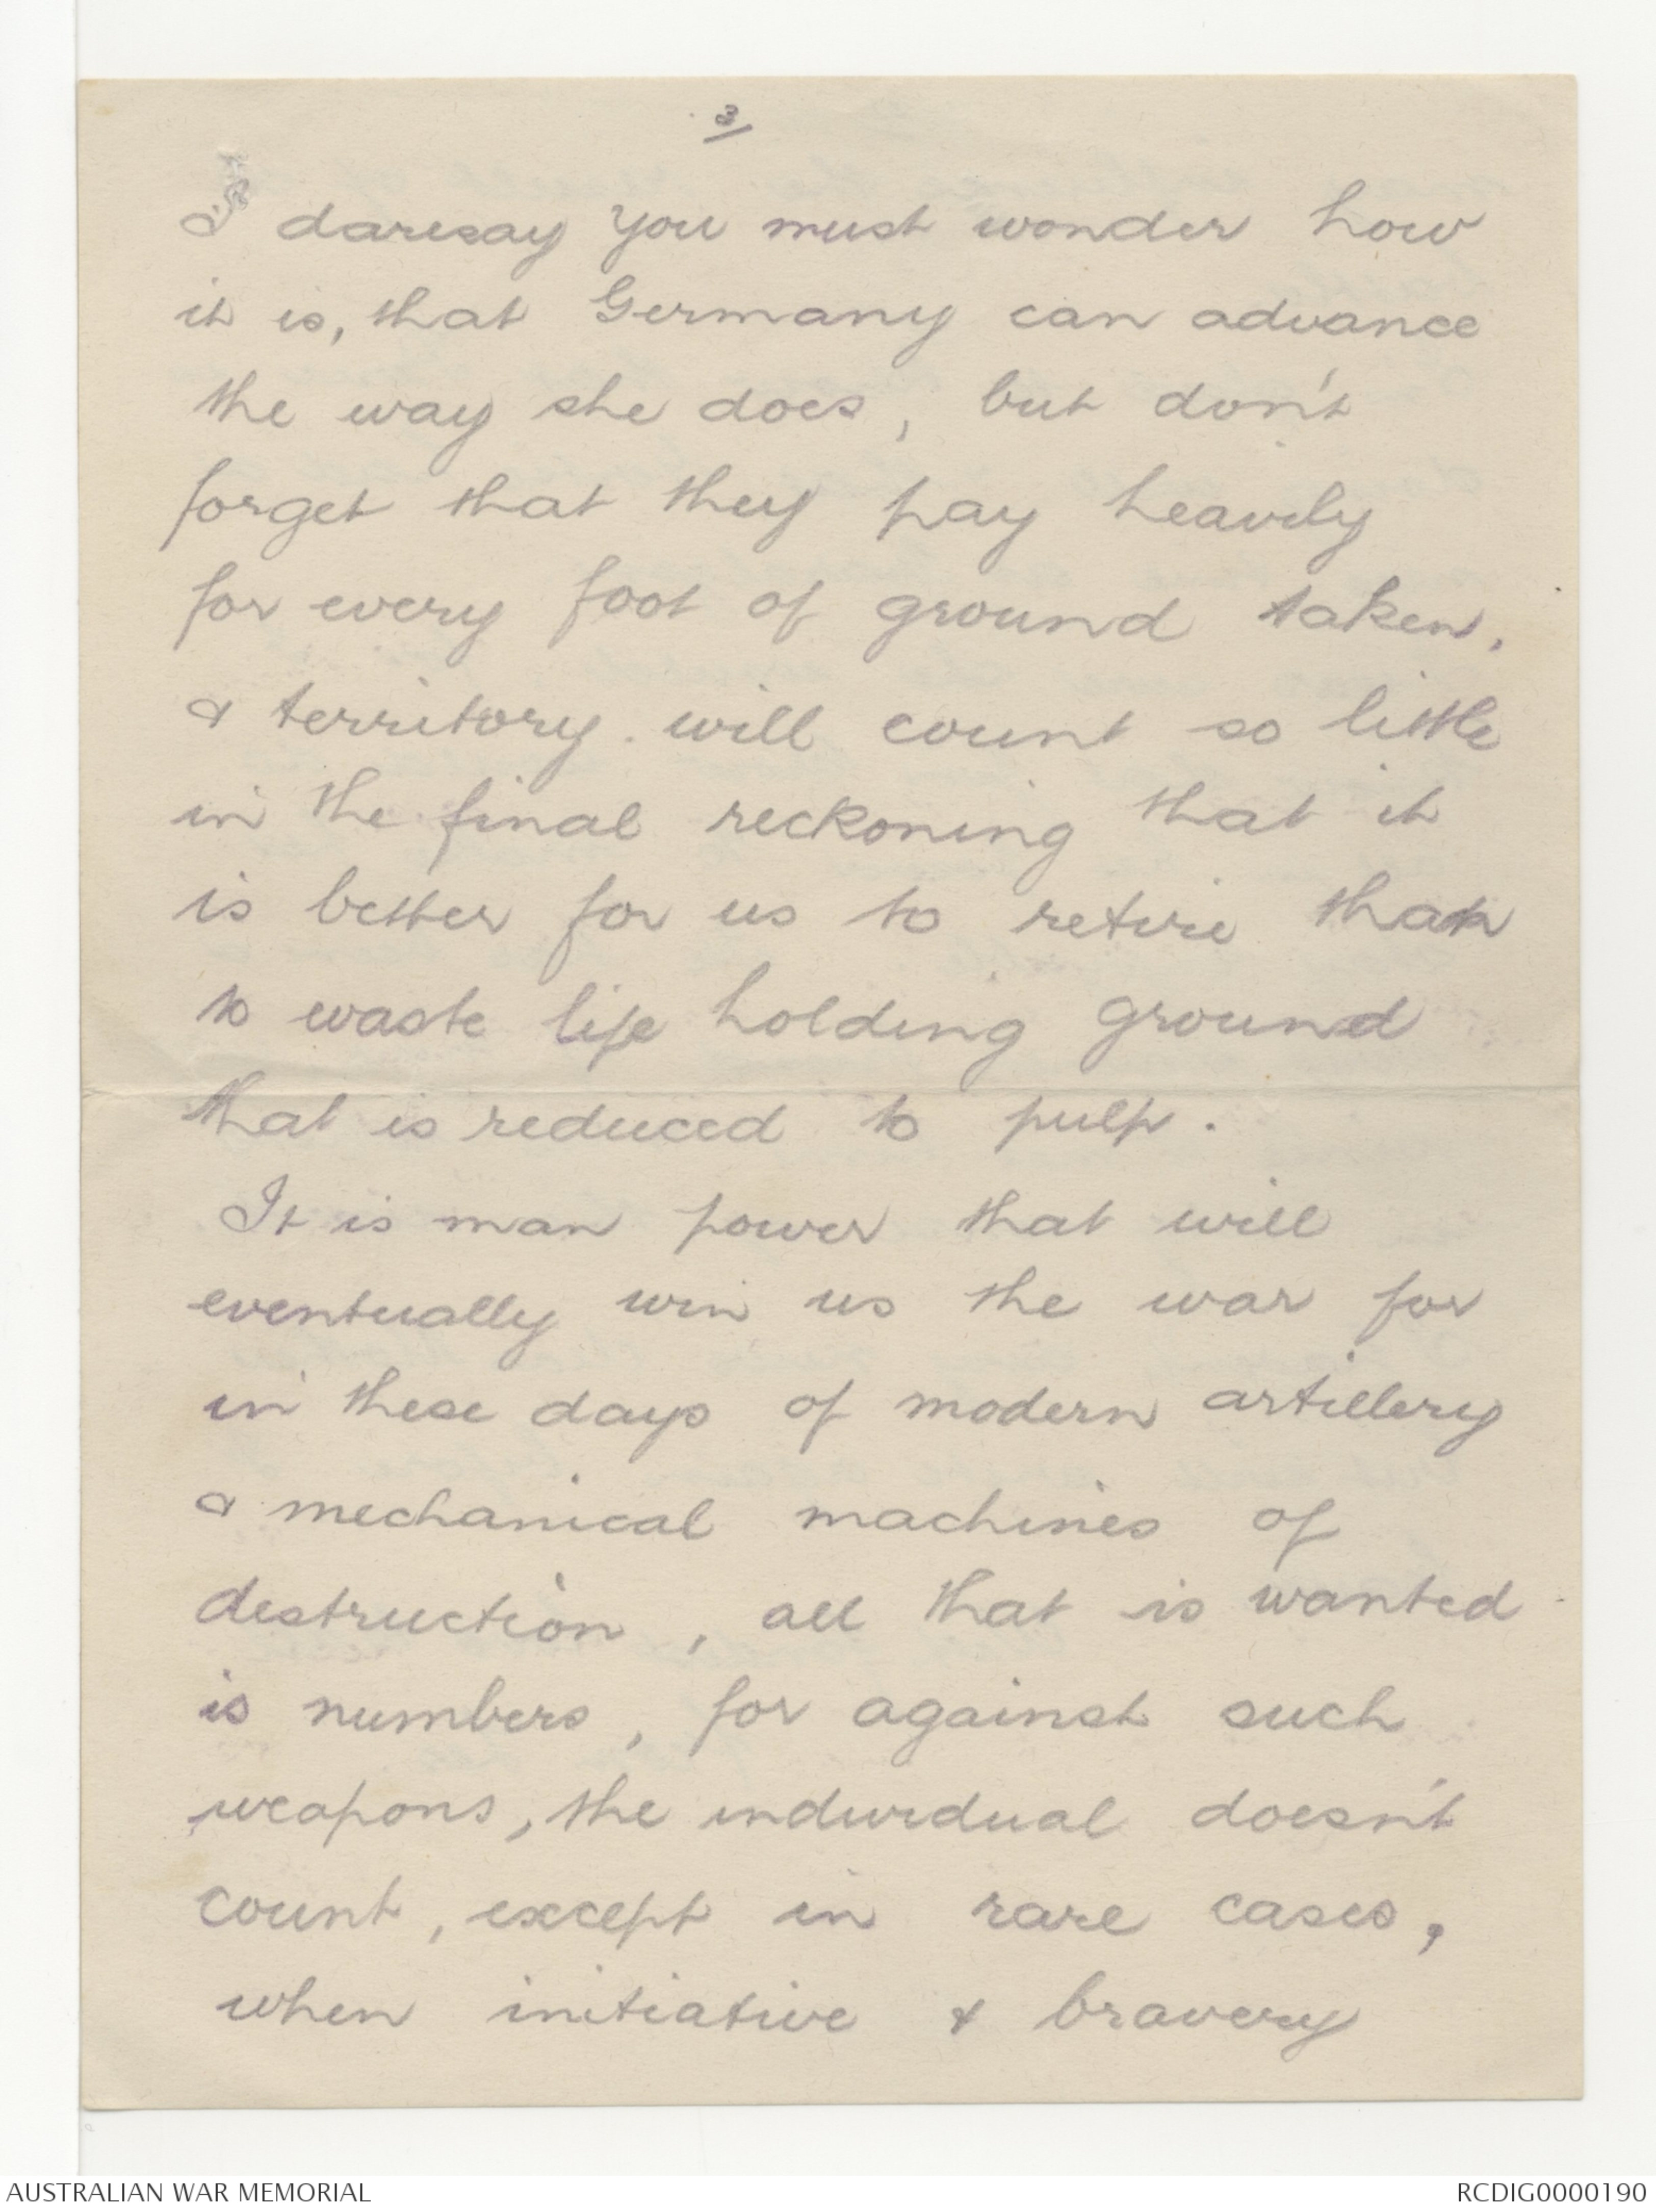 3
I daresay you must wonder how
it is, that Germany can advance
the way she does, but don't
forget that they pay heavily
for every foot of ground taken,
& territory will count so little
in the final reckoning that it
is better for us to retire than
to waste life holding ground
that is reduced to pulp.
It is man power that will
eventually win us the war for
in these days of modern artillery
& mechanical machines of
destruction, all that is wanted
is numbers, for against such
weapons, the individual doesn't
count, except in rare cases,
when initiative & bravery
AUSTRALIAN WAR MEMORIAL
RCDIG0000190